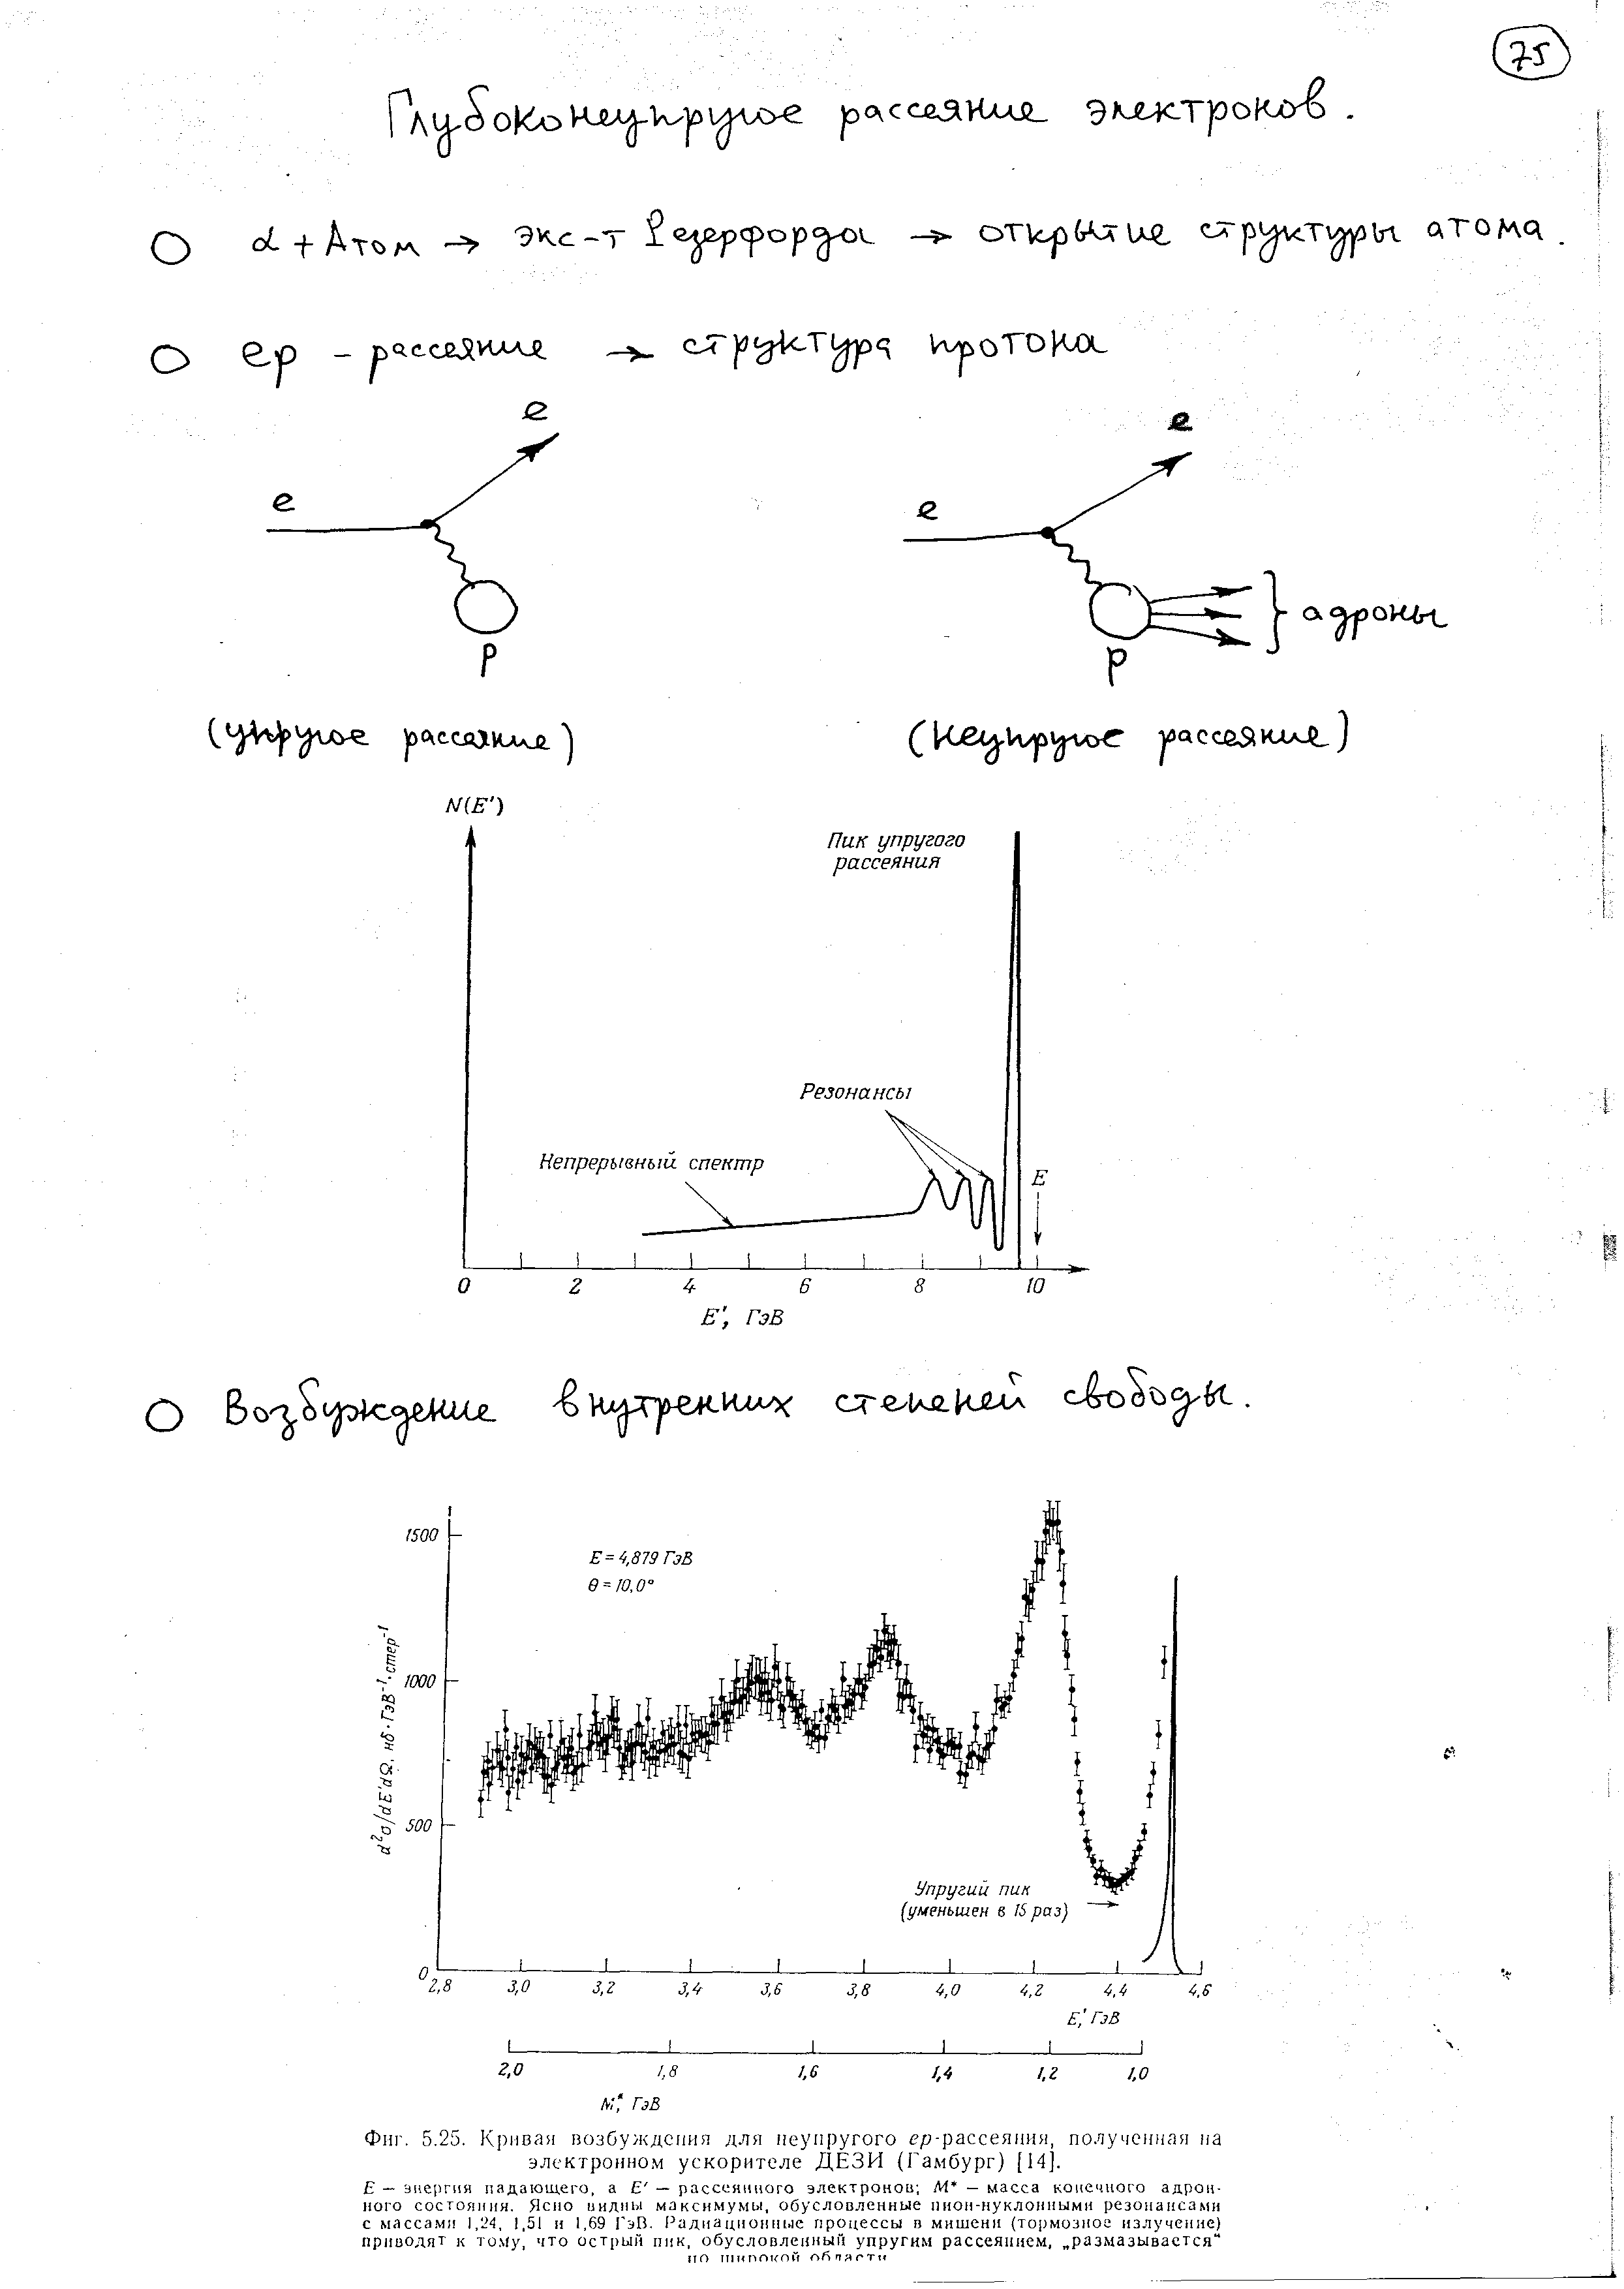 75
Глубоконеупругое рассеяние электронов.
α + Атом → экс-т Резерфорда → открытие структуры атома.
ep - рассеяние → структура протона
e
e
e
e
адроны
p
p
(упругое рассеяние)
(неупругое рассеяние)
N(E′)
Пик упругого
рассеяния
Резонансы
Непрерывный спектр
E
0 2 4 6 8 10
E′, ГэВ
Возбуждение внутренних степеней свободы.
1500
E = 4,879 ГэВ
θ = 10,0°
1000
d²σ/dE′dΩ, нб·ГэВ⁻¹·стер⁻¹
500
Упругий пик
(уменьшен в 15 раз)
0
2,8 3,0 3,2 3,4 3,6 3,8 4,0 4,2 4,4 4,6
E′, ГэВ
2,0 1,8 1,6 1,4 1,2 1,0
M*, ГэВ
Фиг. 5.25. Кривая возбуждения для неупругого ep-рассеяния, полученная на
электронном ускорителе ДЕЗИ (Гамбург) [14].
E — энергия падающего, а E′ — рассеянного электронов; M* — масса конечного адрон-
ного состояния. Ясно видны максимумы, обусловленные пион-нуклонными резонансами
с массами 1,24, 1,51 и 1,69 ГэВ. Радиационные процессы в мишени (тормозное излучение)
приводят к тому, что острый пик, обусловленный упругим рассеянием, „размазывается“
по широкой области